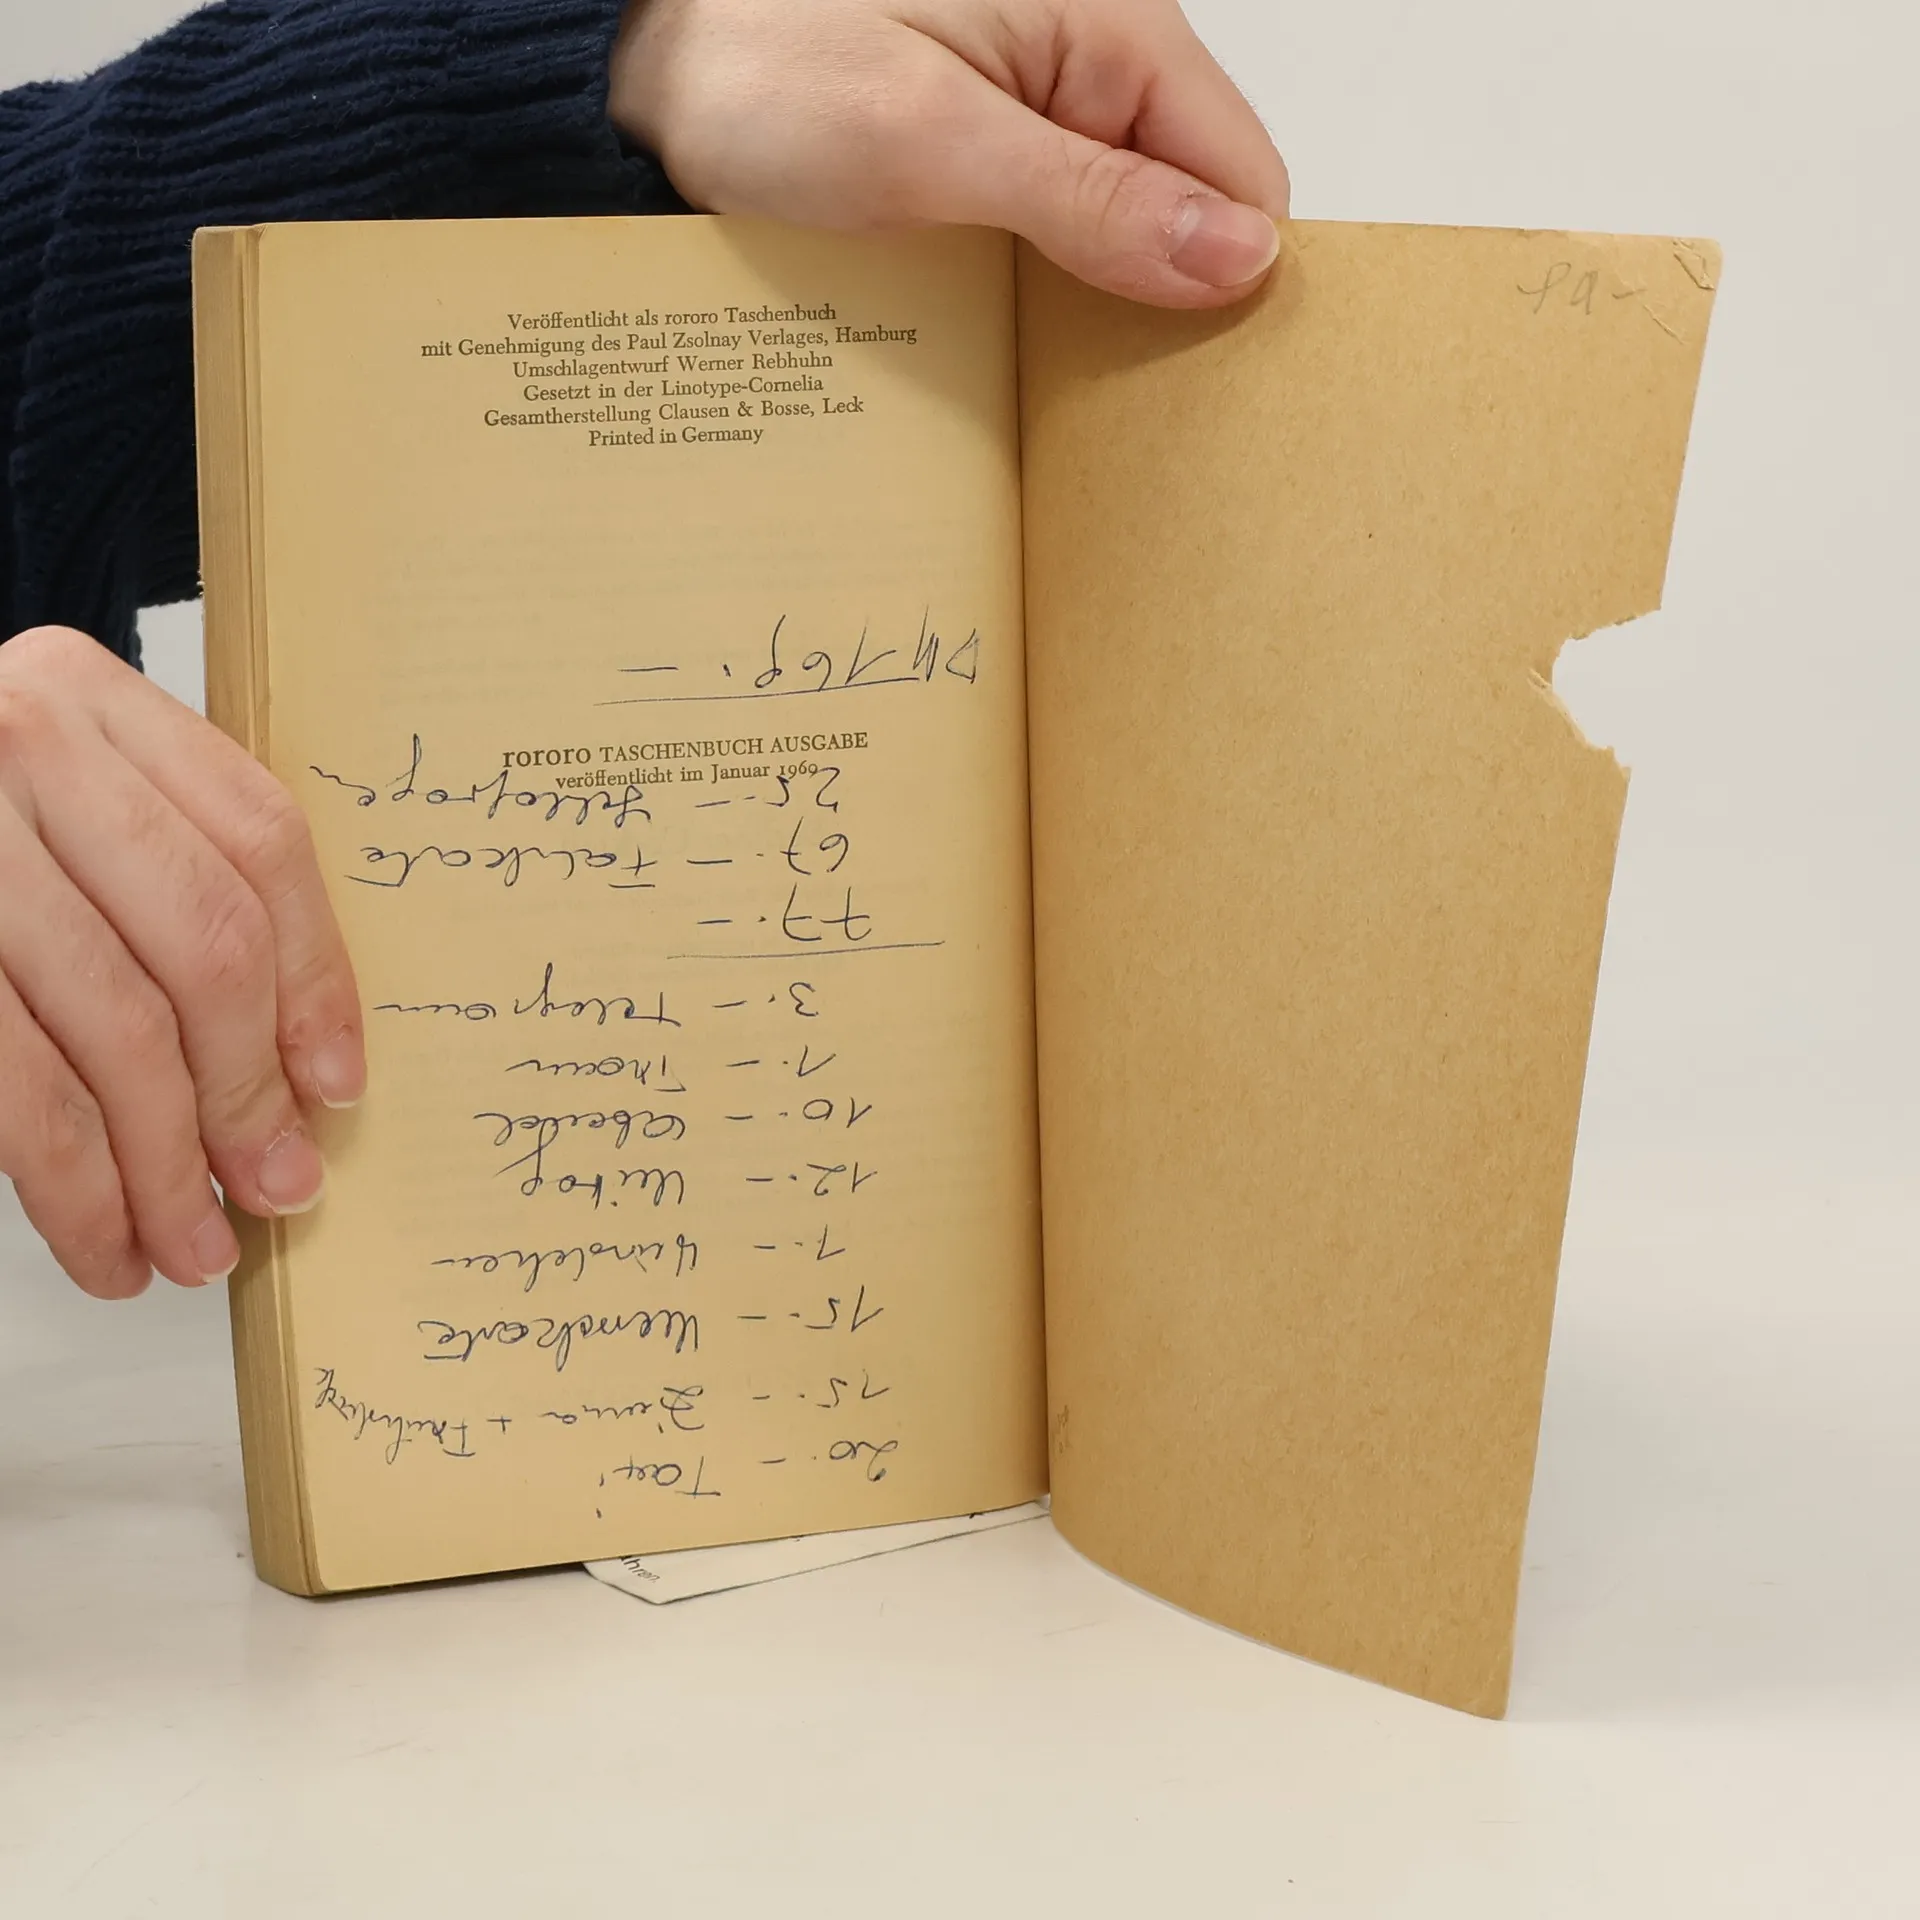 Veröffentlicht als rororo Taschenbuch
mit Genehmigung des Paul Zsolnay Verlages, Hamburg
Umschlagentwurf Werner Rebhuhn
Gesetzt in der Linotype-Cornelia
Gesamtherstellung Clausen & Bosse, Leck
Printed in Germany
rororo TASCHENBUCH AUSGABE
veröffentlicht im Januar 1969
20.- Taxi
15.- Zimma + Frühstück
15.-
1.- Würstchen
12.- Mittag
10.- Abend
1.- Tram
3.- Telegram
77.-
67.- Fahrkarte
25.- Schlafwagen
DM 169.-
hren.